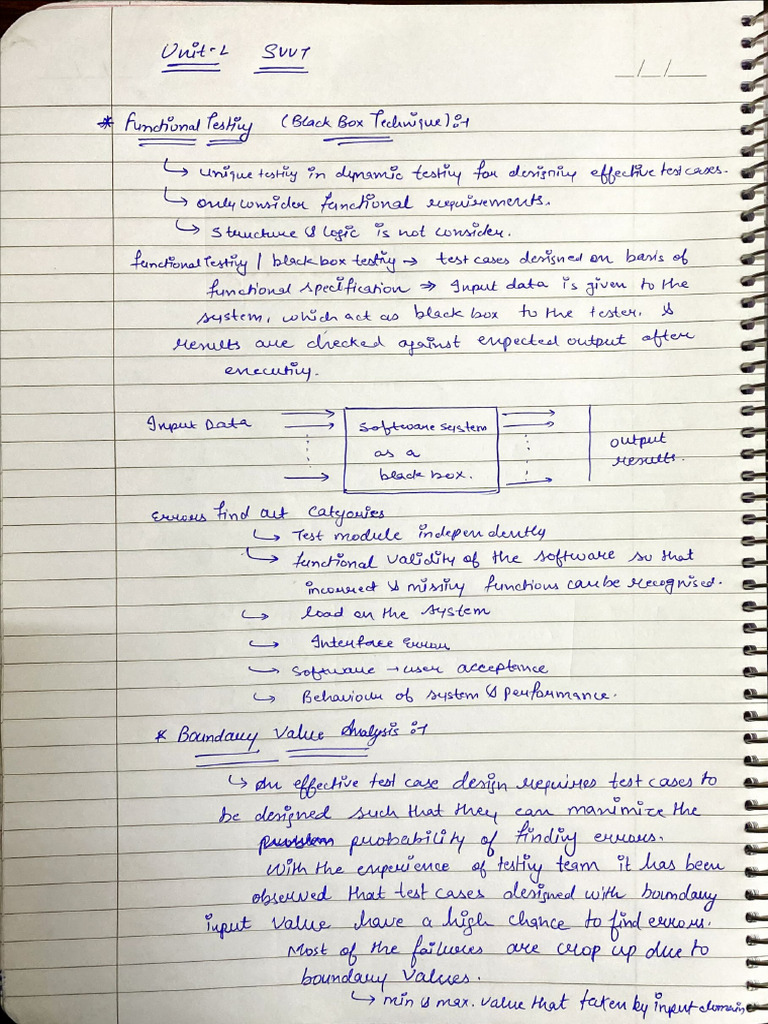 Unit-2 SVVT
_/_/__
* Functional Testing (Black Box Technique) :-
↳ unique testing in dynamic testing for designing effective test cases.
↳ only consider functional requirements.
↳ structure & logic is not consider.
functional testing / black box testing → test cases designed on basis of
functional specification → Input data is given to the
system, which act as black box to the tester. &
results are checked against expected output after
executing.
Input Data
software system
as a
black box.
output
results.
Errors find out catgories
↳ Test module independently
↳ functional validity of the software so that
incorrect & missing functions can be recognised.
↳ load on the system
↳ Interface Error
↳ software → user acceptance
↳ Behaviour of system & performance.
* Boundary Value Analysis :-
↳ An effective test case design requires test cases to
be designed such that they can maximize the
probability of finding errors.
with the experience of testing team it has been
observed that test cases designed with boundary
input value have a high chance to find errors.
Most of the failures are crop up due to
boundary values.
↳ min & max. value that taken by input domain